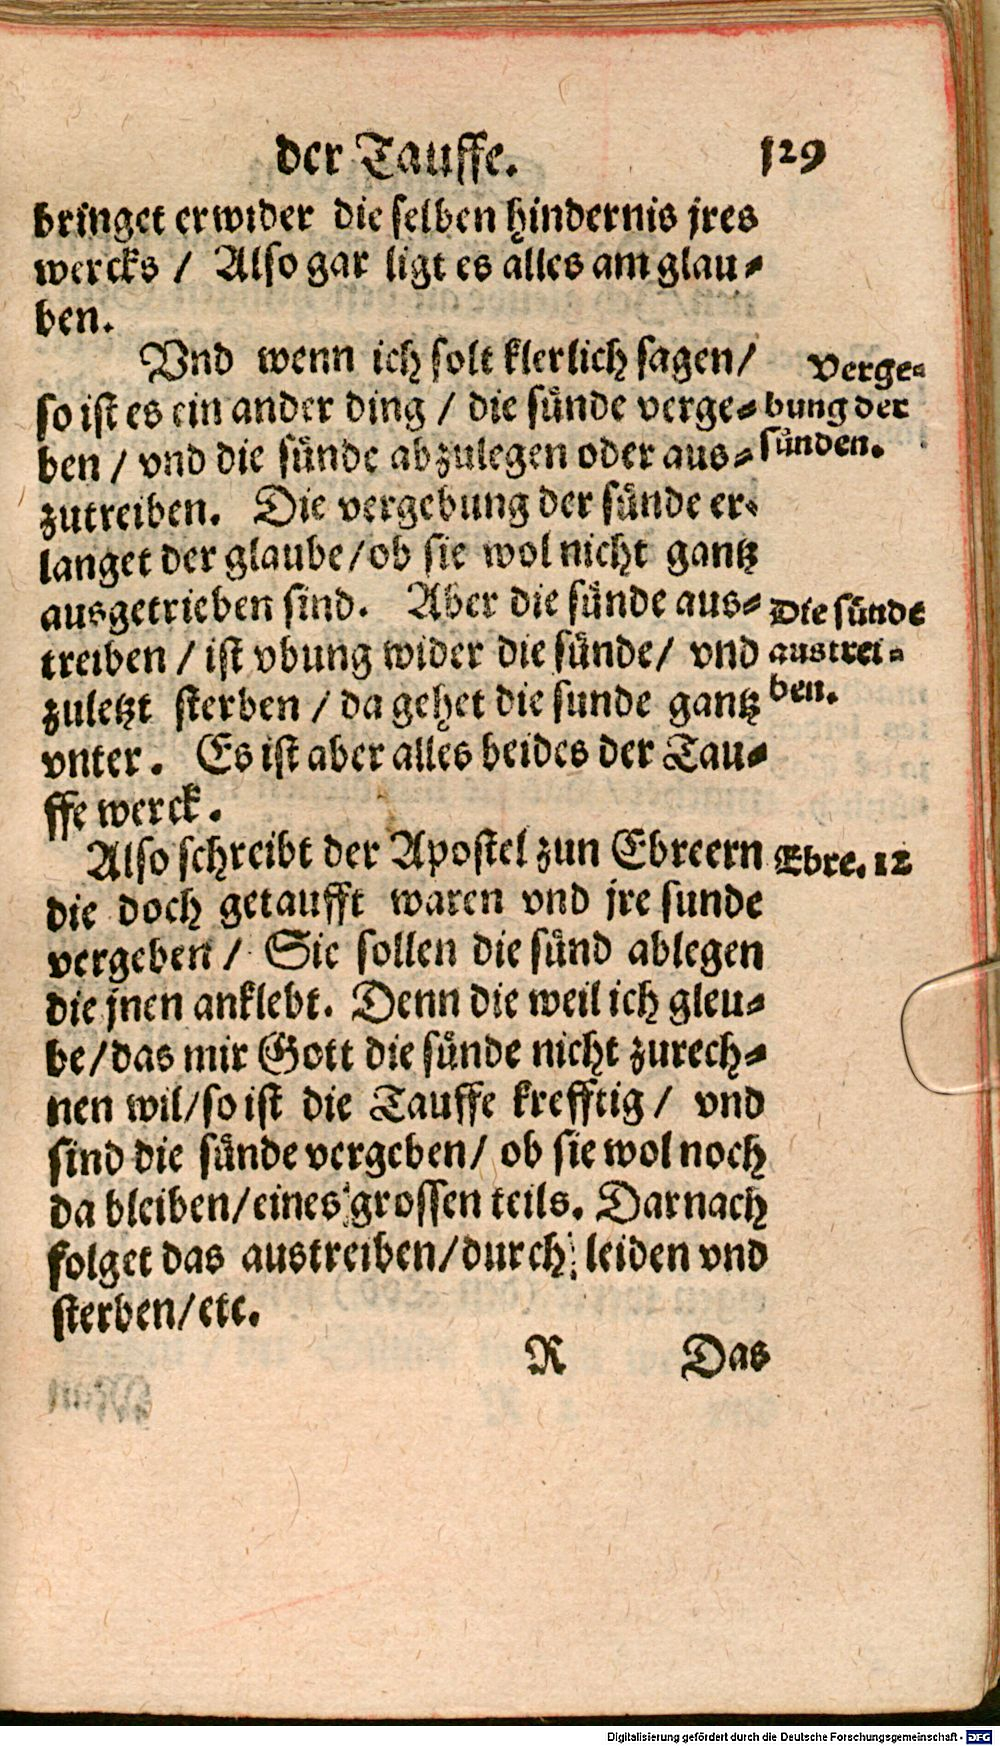 der Tauffe. 129
bringet er wider die selben hindernis jres
wercks / Also gar ligt es alles am glau⸗
ben.
Vnd wenn ich solt klerlich sagen/
so ist es ein ander ding / die sünde verge⸗
ben / vnd die sünde abzulegen oder aus⸗
zutreiben. Die vergebung der sünde er⸗
langet der glaube/ob sie wol nicht gantz
ausgetrieben sind. Aber die sünde aus⸗
treiben / ist vbung wider die sünde/ vnd
zuletzt sterben / da gehet die sunde gantz
vnter. Es ist aber alles beides der Tau⸗
ffe werck.
Also schreibt der Apostel zun Ebreern
die doch getaufft waren vnd jre sunde
vergeben / Sie sollen die sünd ablegen
die jnen anklebt. Denn die weil ich gleu⸗
be/das mir Gott die sünde nicht zurech⸗
nen wil/so ist die Tauffe krefftig/ vnd
sind die sünde vergeben/ ob sie wol noch
da bleiben/eines grossen teils. Darnach
folget das austreiben/durch leiden vnd
sterben/etc.
R Das
Verge⸗
bung der
sünden.
Die sünde
austrei⸗
ben.
Ebre. 12
Digitalisierung gefördert durch die Deutsche Forschungsgemeinschaft - DFG